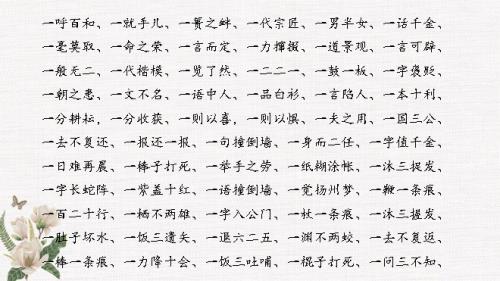 一呼百和、一就手儿、一篑之衅、一代宗匠、一男半女、一话千金、
一毫莫取、一命之荣、一言而定、一力撺掇、一道景观、一言可辟、
一般无二、一代楷模、一览了然、一二二一、一鼓一板、一字褒贬、
一朝之患、一文不名、一语中人、一品白衫、一言陷人、一本十利、
一分耕耘，一分收获、一则以喜，一则以惧、一夫之用、一国三公、
一去不复还、一报还一报、一句撞倒墙、一身而二任、一字值千金、
一日难再晨、一棒子打死、一举手之劳、一纸糊涂帐、一沐三捉发、
一字长蛇阵、一紫盖十红、一语撞倒墙、一觉扬州梦、一鞭一条痕、
一百二十行、一栖不两雄、一字入公门、一杖一条痕、一沐三握发、
一肚子坏水、一饭三遗矢、一退六二五、一渊不两蛟、一去不复返、
一棒一条痕、一力降十会、一饭三吐哺、一棍子打死、一问三不知、